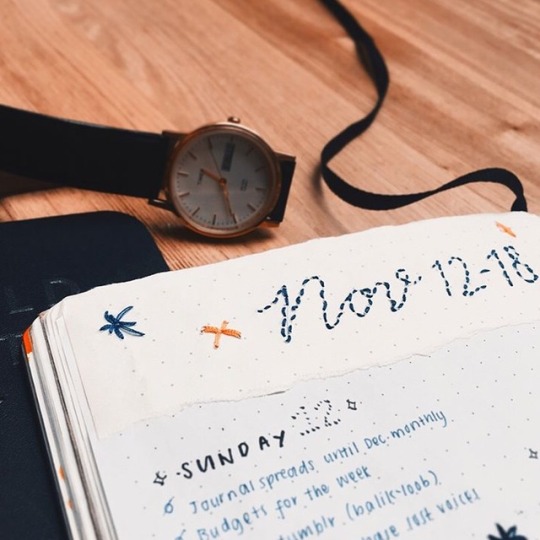 Nov 12-18
SUNDAY 12
Journal spreads until Dec monthly
Budgets for the week
tumblr (balik-loob)
lost voices